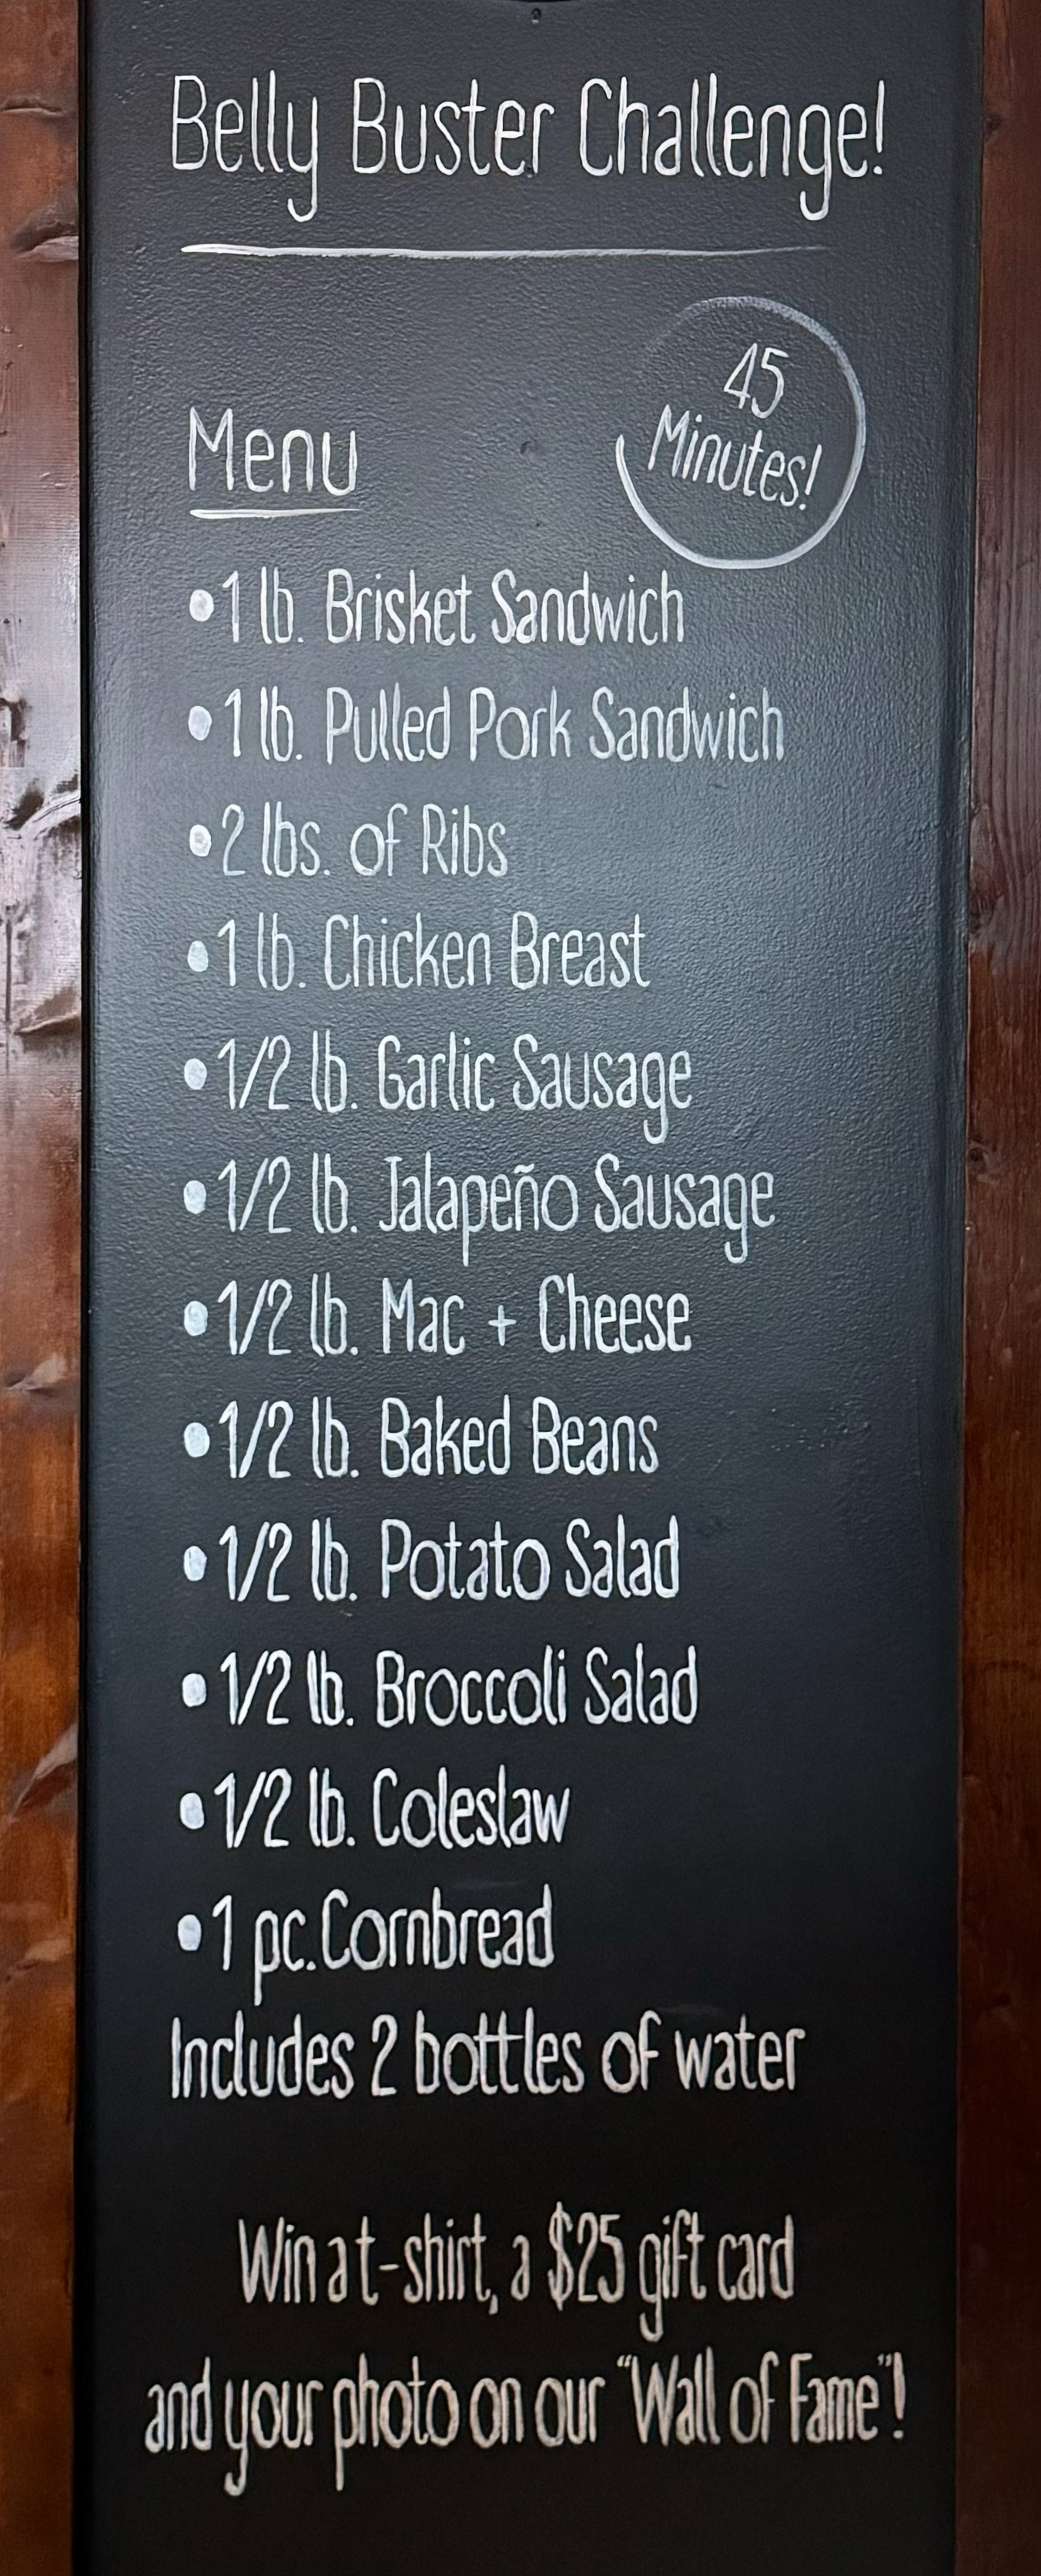 Belly Buster Challenge!
45
Minutes!
Menu
•1 lb. Brisket Sandwich
•1 lb. Pulled Pork Sandwich
•2 lbs. of Ribs
•1 lb. Chicken Breast
•1/2 lb. Garlic Sausage
•1/2 lb. Jalapeño Sausage
•1/2 lb. Mac + Cheese
•1/2 lb. Baked Beans
•1/2 lb. Potato Salad
•1/2 lb. Broccoli Salad
•1/2 lb. Coleslaw
•1 pc.Cornbread
Includes 2 bottles of water
Win a t-shirt, a $25 gift card
and your photo on our "Wall of Fame"!